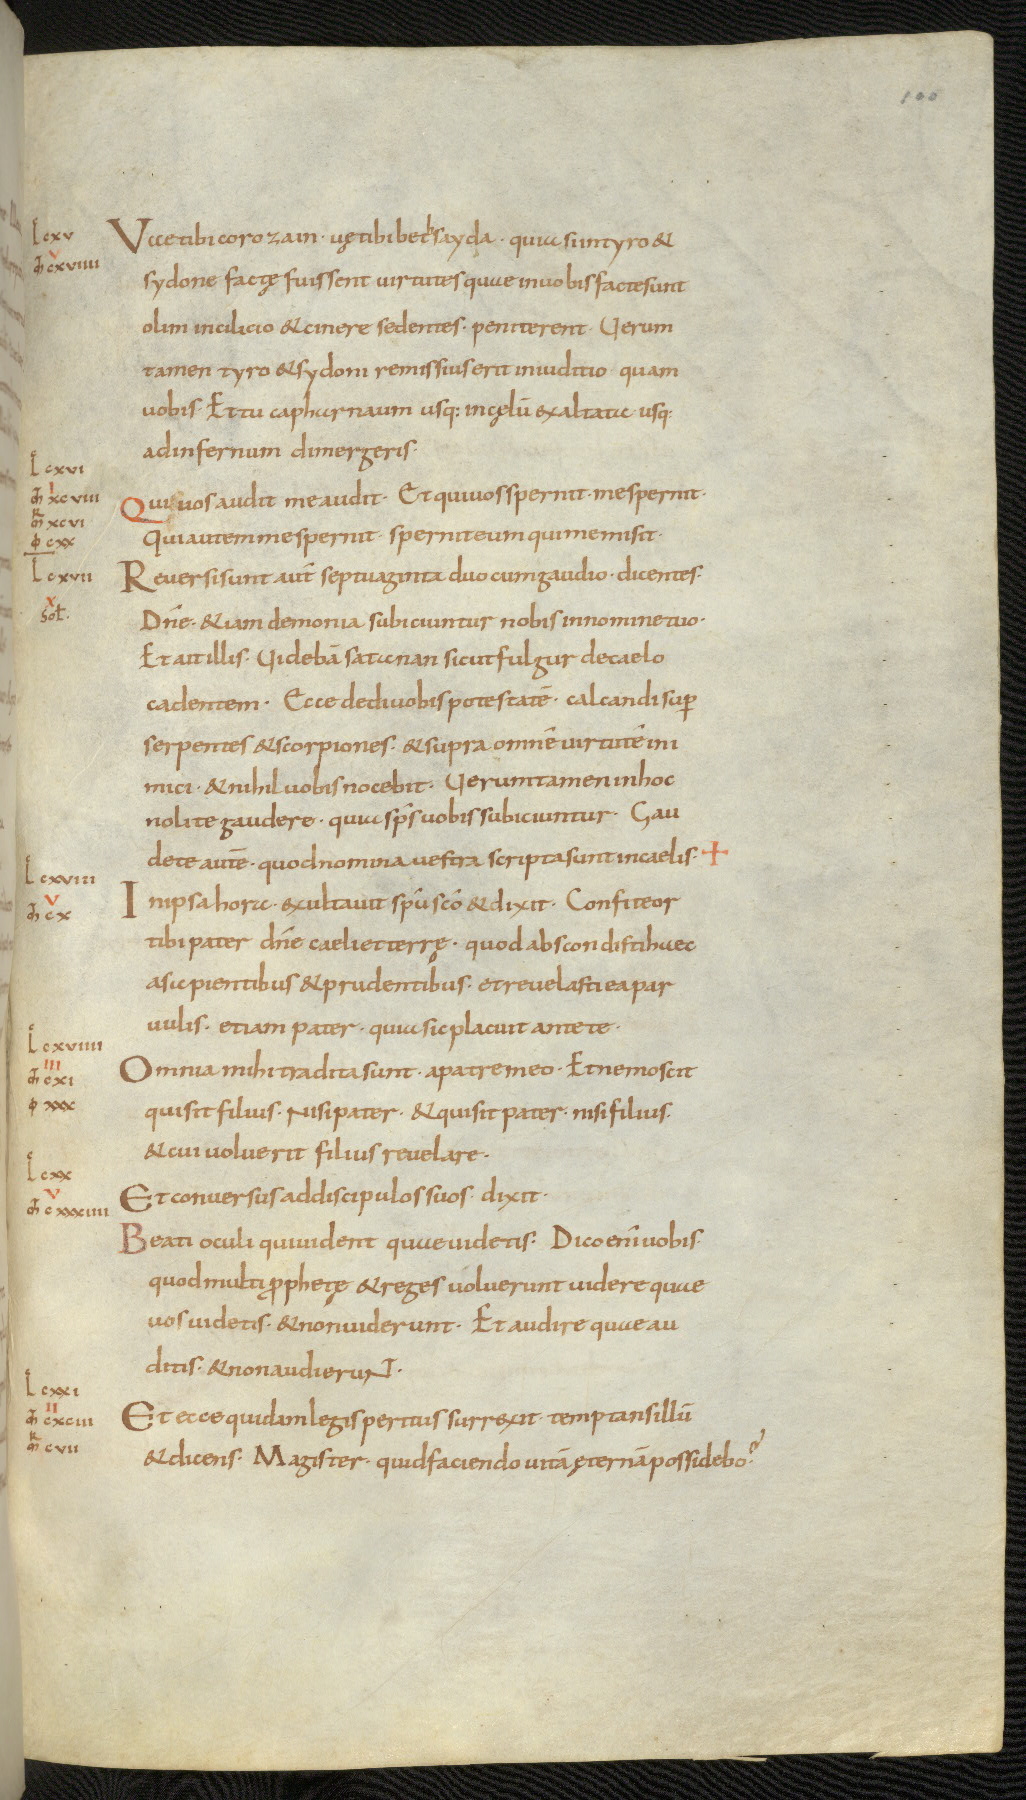 100
L cxv
Uae tibi corozain · uę tibi bethsayda · quia si in tyro &
V
M cxviiii
sydone factę fuissent uirtutes quae in uobis factesunt
olim in cilicio & cinere sedentes · peniterent · Uerum
tamen tyro & sydoni remissius erit in iuditio quam
uobis · Et tu capharnaum usq: in cęlū exaltata · usq:
ad infernum dimergeris ·
L cxvi
I
M xcviii
Qui uos audit me audit · Et qui uos spernit · me spernit ·
MR xcvi
φ cxx
Qui autem me spernit · spernit eum qui me misit ·
L cxvii
Reuersi sunt aut̄ septuaginta duo cum gaudio · dicentes ·
X
Sol̄ ·
Dn̄e · & iam demonia subiciuntur nobis in nomine tuo ·
Et ait illis · Uidebā satanan sicut fulgur de caelo
cadentem · Ecce dedi uobis potestatē · calcandi sup̄
serpentes & scorpiones · & supra omnē uirtutē ini
mici · & nihil uobis nocebit · Uerumtamen in hoc
nolite gaudere · quia sp̄s uobis subiciuntur · Gau
dete autē · quod nomina uestra scripta sunt in caelis · +
L cxviii
In ipsa hora · exultauit sp̄u sc̄o & dixit · Confiteor
V
M cx
tibi pater dn̄e caeli et terrę · quod abscondisti haec
a sapientibus & prudentibus · et reuelasti ea par
uulis · etiam pater · quia sic placuit ante te ·
L cxviiii
Omnia mihi tradita sunt · a patre meo · Et nemo scit
III
M cxi
φ xxx
qui sit filius · Nisi pater · & qui sit pater · nisi filius ·
& cui uoluerit filius reuelare ·
L cxx
V
M cxxxiiii
Et conuersus ad discipulos suos · dixit ·
Beati oculi qui uident quae uidetis · Dico enī uobis ·
quod multi p̄phetę & reges uoluerunt uidere quae
uos uidetis · & non uiderunt · Et audire quae au
ditis · & non audieruNT ·
L cxxi
II
M cxciii
Et ecce quidam legis peritus surrexit · temptans illū
MR cvii
& dicens · Magister · quid faciendo uitā ęternā possidebo ?